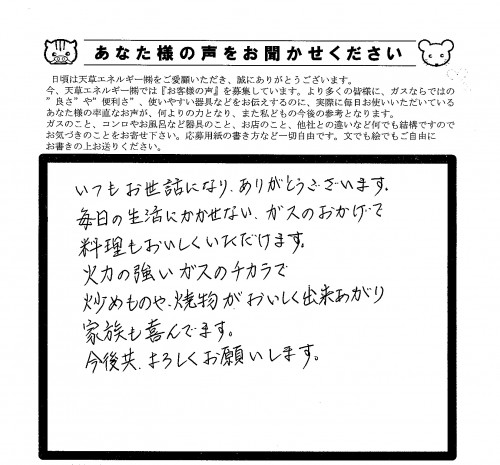 あなた様の声をお聞かせください
日頃は天草エネルギー㈱をご愛願いただき、誠にありがとうございます。
今、天草エネルギー㈱では『お客様の声』を募集しています。より多くの皆様に、ガスならではの
"良さ"や"便利さ"、使いやすい器具などをお伝えするのに、実際に毎日お使いいただいている
あなた様の率直なお声が、何よりの力となり、また私どもの今後の参考となります。
ガスのこと、コンロやお風呂など器具のこと、お店のこと、他社との違いなど何でも結構ですので
お気づきのことをお寄せ下さい。応募用紙の書き方など一切自由です。文でも絵でもご自由に
お書きの上お送りください。
いつもお世話になり、ありがとうございます。
毎日の生活にかかせない、ガスのおかげで
料理もおいしくいただけます。
火力の強いガスのチカラで
炒めものや、焼物がおいしく出来あがり
家族も喜んでます。
今後共、よろしくお願いします。